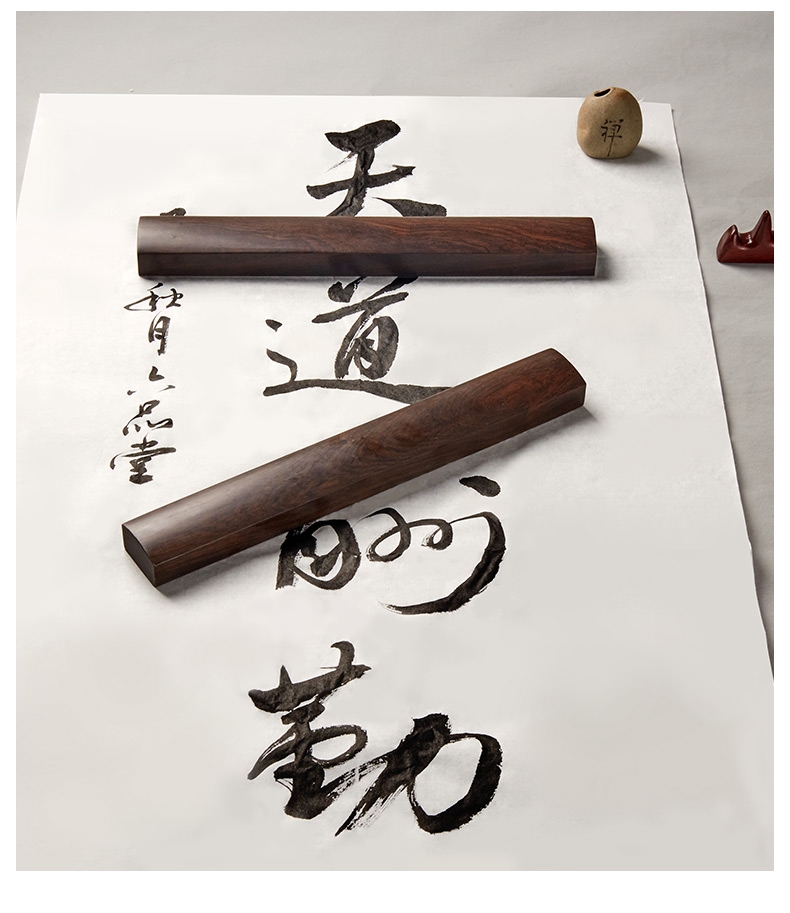 天道酬勤
秋月六品堂
禅